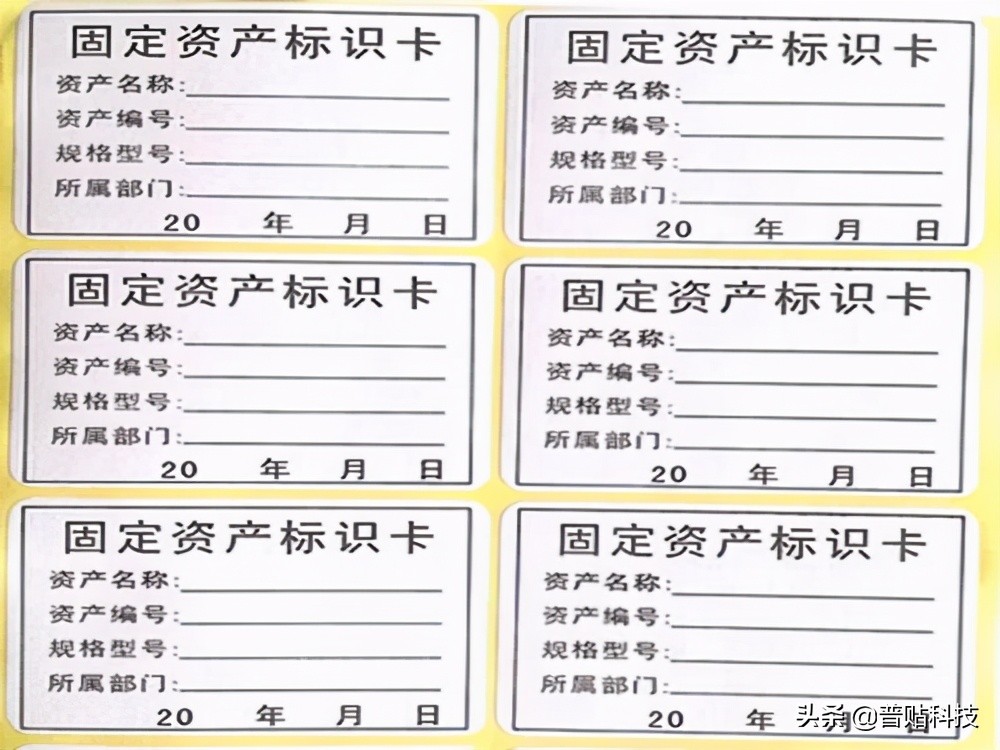 固定资产标识卡
资产名称:
资产编号:
规格型号:
所属部门:
20 年 月 日
固定资产标识卡
资产名称:
资产编号:
规格型号:
所属部门:
20 年 月 日
固定资产标识卡
资产名称:
资产编号:
规格型号:
所属部门:
20 年 月 日
固定资产标识卡
资产名称:
资产编号:
规格型号:
所属部门:
20 年 月 日
固定资产标识卡
资产名称:
资产编号:
规格型号:
所属部门:
20 年 月 日
固定资产标识卡
资产名称:
资产编号:
规格型号:
所属部门:
20 年 月 日
头条 @普贴科技